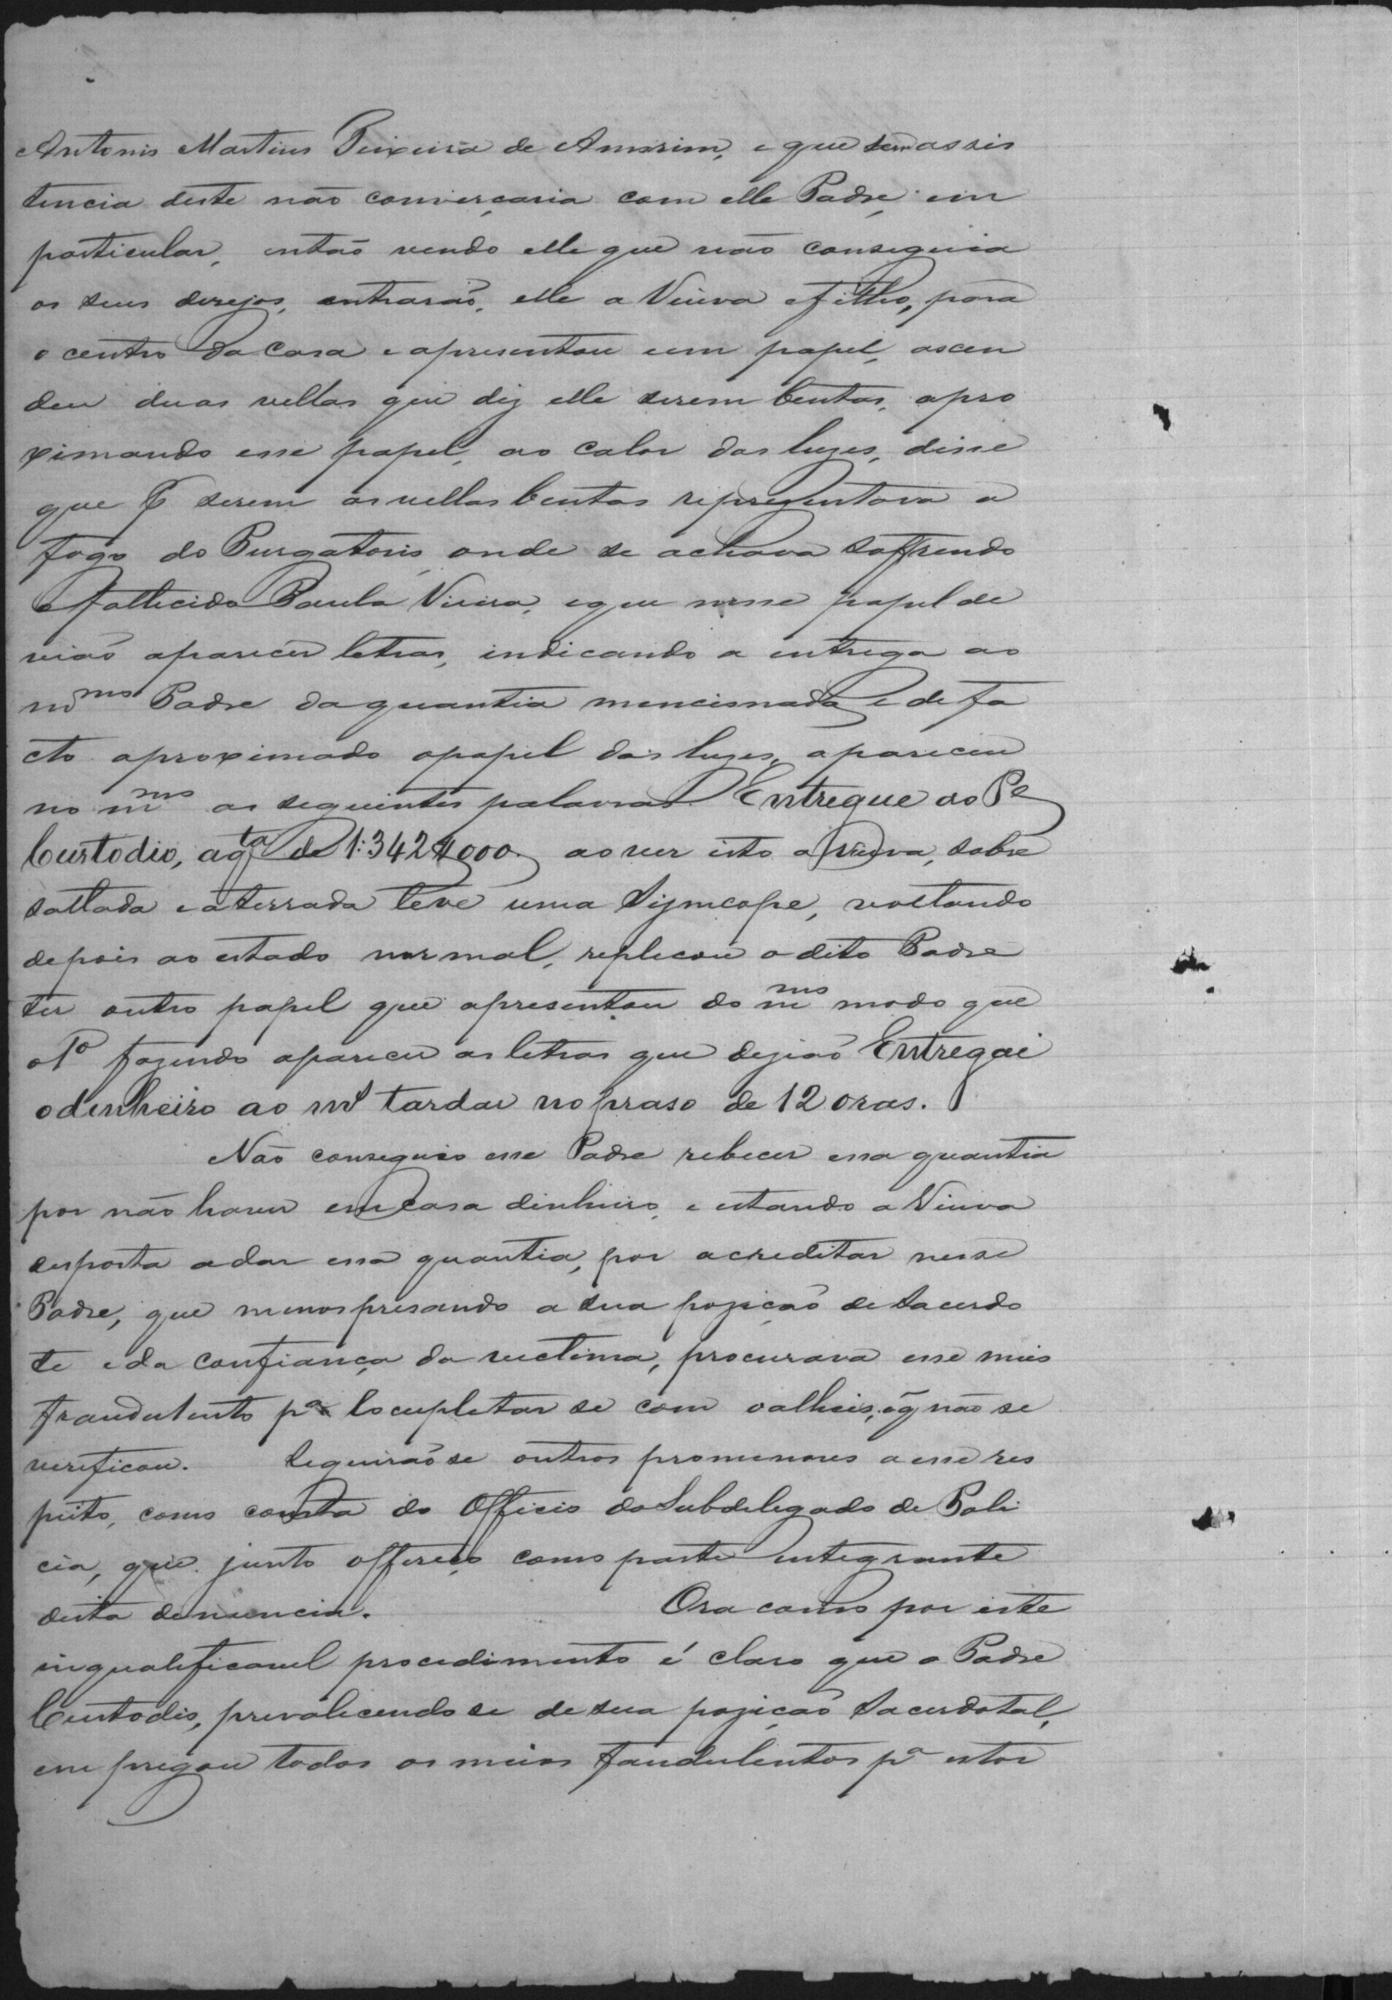 Antonio Martins Teixeira de Amorim, e que sem assis
tencia deste não converçaria com elle Padre em
particular, então vendo elle que não conseguia
os seus dezejos, entrarão, elle a Viuva e filho, para
o centro da casa e apresentou um papel, ascen
deu duas vellas que diz elle serem bentas, apro
ximando esse papel, ao calor das luzes, disse
que p serem as vellas bentas representava o
fogo do Purgatorio, onde se achava soffrendo
o fallecido Paula Vieira, e que nesse papel de
vião aparecer letras, indicando a entrega ao
mmo Padre da quantia mencionada, e de fa
cto aproximado o papel das luzes, apareceu
no mmo as seguintes palavras Entregue ao Pe
Custodio, a qta de 1:342$000. ao ver isto a Viuva, sobre
saltada e aterrada teve uma Symcope, voltando
depois ao estado normal, replicou o dito Padre
ter outro papel que apresentou do mmo modo que
o 1o fazendo aparecer as letras que dizião Entregai
o dinheiro ao ml tardar no praso de 12 oras.
Não conseguio esse Padre rebecer essa quantia
por não haver em casa dinheiro, e estando a Viuva
desposta a dar essa quantia, por acreditar nesse
Padre, que menospresando a sua pozição de Sacerdo
te e da confiança da victima, procurava esse meio
fraudulento pa locupletar se com o alheio, o q não se
verificou. Seguirão se outros promenores a esse res
peito, como consta do Officio do Subdelegado de Poli
cia, que junto offereço como parte integrante
desta denuncia. Ora como por este
inqualificavel procedimento é claro que o Padre
Custodio, prevalecendo se de sua pozição Sacerdotal,
empregou todos os meios faudulentos pa estor